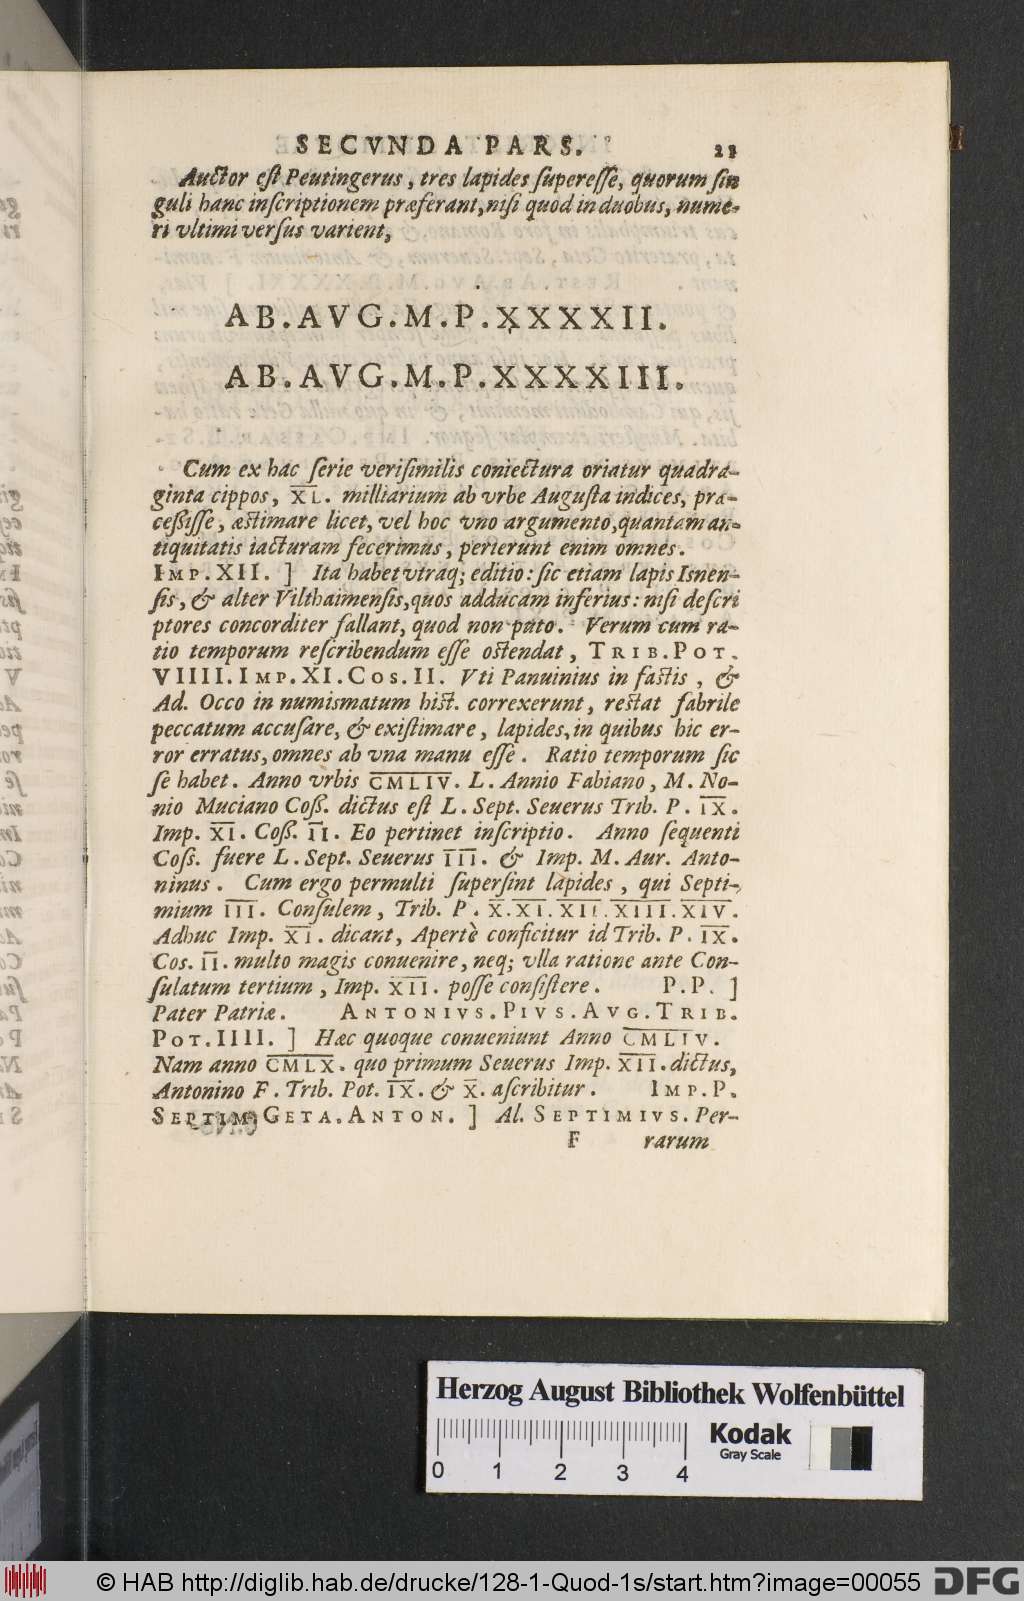 SECVNDA PARS. 23
Auctor est Peutingerus, tres lapides superesse, quorum sin
guli hanc inscriptionem præferant, nisi quod in duobus, nume-
ri vltimi versus varient,
AB. AVG. M. P. XXXXII.
AB. AVG. M. P. XXXXIII.
Cum ex hac serie verisimilis coniectura oriatur quadra-
ginta cippos, X̅L̅. milliarium ab vrbe Augusta indices, præ-
cessisse, æstimare licet, vel hoc vno argumento, quantam an-
tiquitatis iacturam fecerimus, perierunt enim omnes.
IMP. XII. ] Ita habet vtraq; editio: sic etiam lapis Isnen-
sis, & alter Vilthaimensis, quos adducam inferius: nisi descri
ptores concorditer fallant, quod non puto. Verum cum ra-
tio temporum rescribendum esse ostendat, TRIB. POT.
VIIII. IMP. XI. COS. II. Vti Panuinius in fastis, &
Ad. Occo in numismatum hist. correxerunt, restat fabrile
peccatum accusare, & existimare, lapides, in quibus hic er-
ror erratus, omnes ab vna manu esse. Ratio temporum sic
se habet. Anno vrbis C̅M̅L̅I̅V̅. L. Annio Fabiano, M. No-
nio Muciano Coss. dictus est L. Sept. Seuerus Trib. P. I̅X̅.
Imp. X̅I̅. Coss. I̅I̅. Eo pertinet inscriptio. Anno sequenti
Coss. fuere L. Sept. Seuerus I̅I̅I̅. & Imp. M. Aur. Anto-
ninus. Cum ergo permulti supersint lapides, qui Septi-
mium I̅I̅I̅. Consulem, Trib. P. X̅. X̅I̅. X̅I̅I̅. X̅I̅I̅I̅. X̅I̅V̅.
Adhuc Imp. X̅I̅. dicant, Apertè conficitur id Trib. P. I̅X̅.
Cos. I̅I̅. multo magis conuenire, neq; vlla ratione ante Con-
sulatum tertium, Imp. X̅I̅I̅. posse consistere. P. P. ]
Pater Patriæ. ANTONIVS. PIVS. AVG. TRIB.
POT. IIII. ] Hæc quoque conueniunt Anno C̅M̅L̅I̅V̅.
Nam anno C̅M̅L̅X̅. quo primum Seuerus Imp. X̅I̅I̅. dictus,
Antonino F. Trib. Pot. I̅X̅. & X̅. ascribitur. IMP. P.
SEPTIM. GETA. ANTON. ] Al. SEPTIMIVS. Per-
F rarum
Herzog August Bibliothek Wolfenbüttel
Kodak
Gray Scale
0 1 2 3 4
© HAB http://diglib.hab.de/drucke/128-1-Quod-1s/start.htm?image=00055 DFG